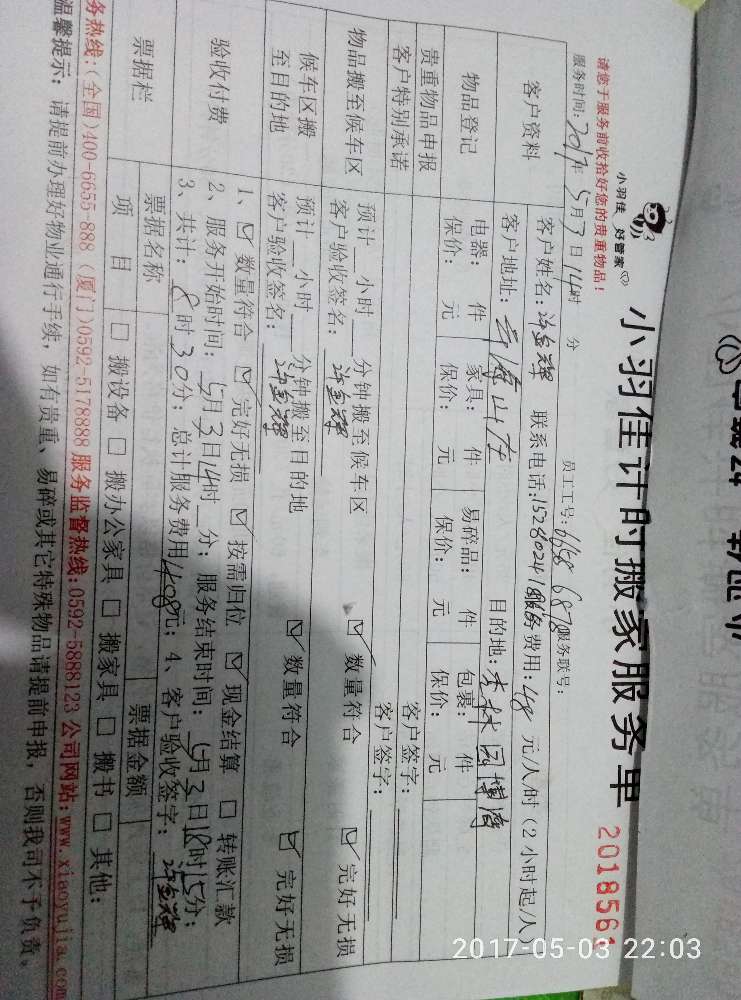 小羽佳 好管家
小羽佳计时搬家服务单
2018561
请您于服务前收拾好您的贵重物品！
服务时间：2017年5月3日14时 分 员工工号：6158 6878 服务联号：
客户资料
客户姓名：许金辉 联系电话：15280241 服务费用：48元/人/时（2小时起/人
客户地址：云海山庄 目的地：杏林园博湾
物品登记
电器： 件 家具： 件 易碎品： 件 包裹： 件
保价： 元 保价： 元 保价： 元 保价： 元
贵重物品申报 客户签字：
客户特别承诺 客户签字：
物品搬至候车区
预计 小时 分钟搬至候车区 数量符合 完好无损
客户验收签名：许金辉
候车区搬至目的地
预计 小时 分钟搬至目的地 数量符合 完好无损
客户验收签名：许金辉
验收付费
1、 数量符合 完好无损 按需归位 现金结算 转账汇款
2、服务开始时间：5月3日14时 分；服务结束时间：5月3日18时15分；
3、共计：8时30分；总计服务费用408元；4、客户验收签字：许金辉
票据栏
票据名称 票据金额
项目 搬设备 搬办公家具 搬家具 搬书 其他：
务热线：(全国)400-6655-888 (厦门)0592-5178888 服务监督热线：0592-5888123 公司网站：www.xiaoyujia.com
温馨提示：请提前办理好物业通行手续，如有贵重、易碎或其它特殊物品请提前申报，否则我司不予负责。
2017-05-03 22:03